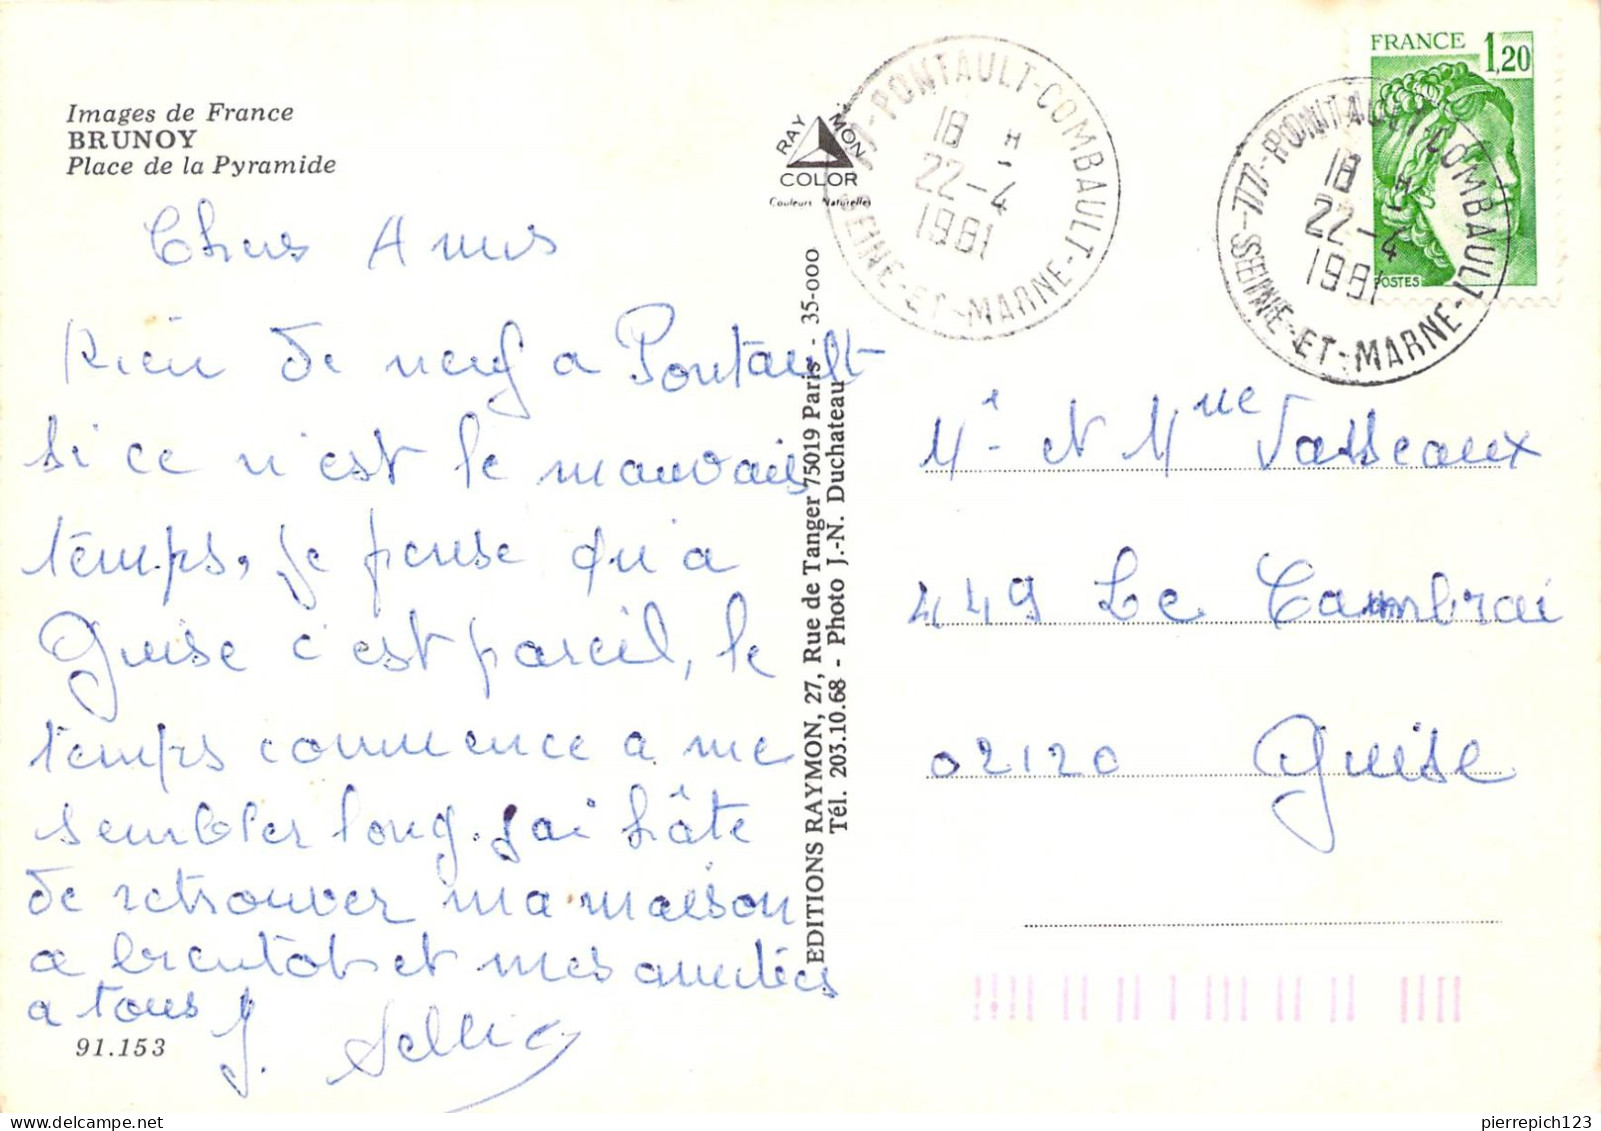 Images de France
BRUNOY
Place de la Pyramide
Chers Amis
Rien de neuf a Pontault
si ce n'est le mauvais
temps, je pense qu'a
Guise c'est pareil, le
temps commence a me
sembler long. j'ai hâte
de retrouver ma maison
a bientôt et mes amitiés
a tous J.
91.153
RAYMON
COLOR
Couleurs Naturelles
EDITIONS RAYMON, 27, Rue de Tanger 75019 Paris - 35-000
Tél. 203.10.68 - Photo J.-N. Duchateau
77-PONTAULT-COMBAULT
18 H
22-4
1981
SEINE-ET-MARNE
FRANCE 1,20
POSTES
77-PONTAULT-COMBAULT
18 H
22-4
1981
SEINE-ET-MARNE
Mr et Mme Vasseaux
449 Le Cambrai
02120 Guise
pierrepich123